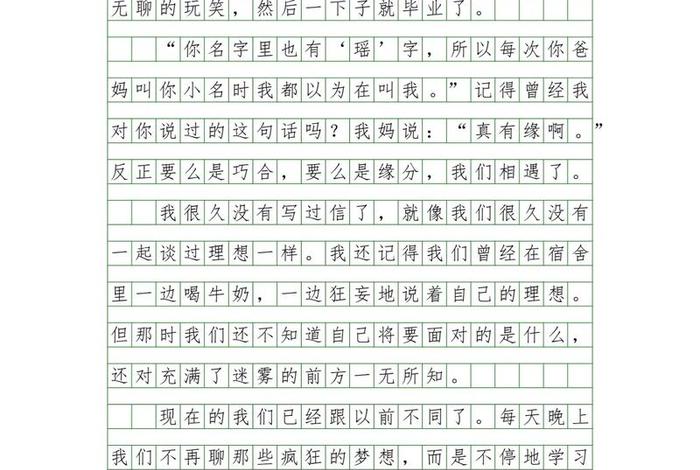 无聊的玩笑，然后一下子就毕业了。
“你名字里也有‘瑶’字，所以每次你爸
妈叫你小名时我都以为在叫我。”记得曾经我
对你说过的这句话吗？我妈说：“真有缘啊。”
反正要么是巧合，要么是缘分，我们相遇了。
我很久没有写过信了，就像我们很久没有
一起谈过理想一样。我还记得我们曾经在宿舍
里一边喝牛奶，一边狂妄地说着自己的理想。
但那时我们还不知道自己将要面对的是什么，
还对充满了迷雾的前方一无所知。
现在的我们已经跟以前不同了。每天晚上
我们不再聊那些疯狂的梦想，而是不停地学习